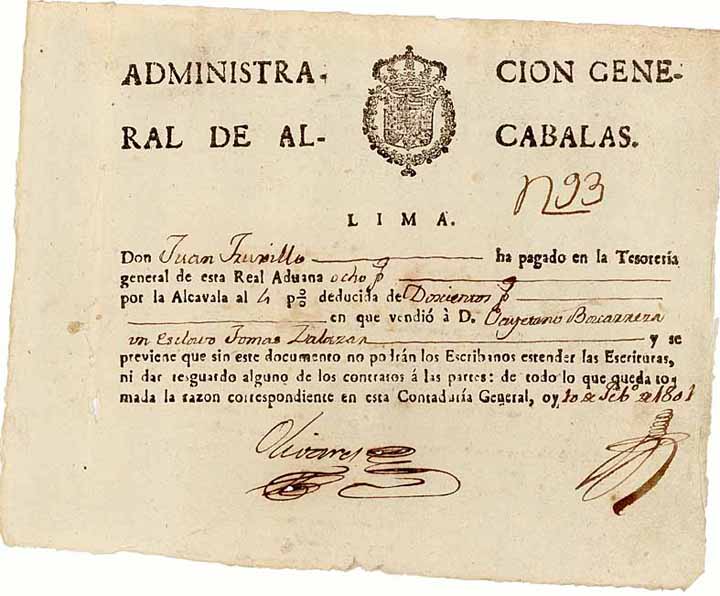 ADMINISTRA- CION GENE-
RAL DE AL- CABALAS.
N 93
LIMA.
Don Juan Truxillo ha pagado en la Tesorería
general de esta Real Aduana ocho p
por la Alcavala al 4 p% deducida de Doscientos p
en que vendió à D. Cayetano
un Esclavo Tomas Zalazar y se
previene que sin este documento no podrán los Escribanos estender las Escrituras,
ni dar resguardo alguno de los contratos á las partes: de todo lo que queda to-
mada la razon correspondiente en esta Contaduría General, oy 10 de Feb.º de 1801
Olivares